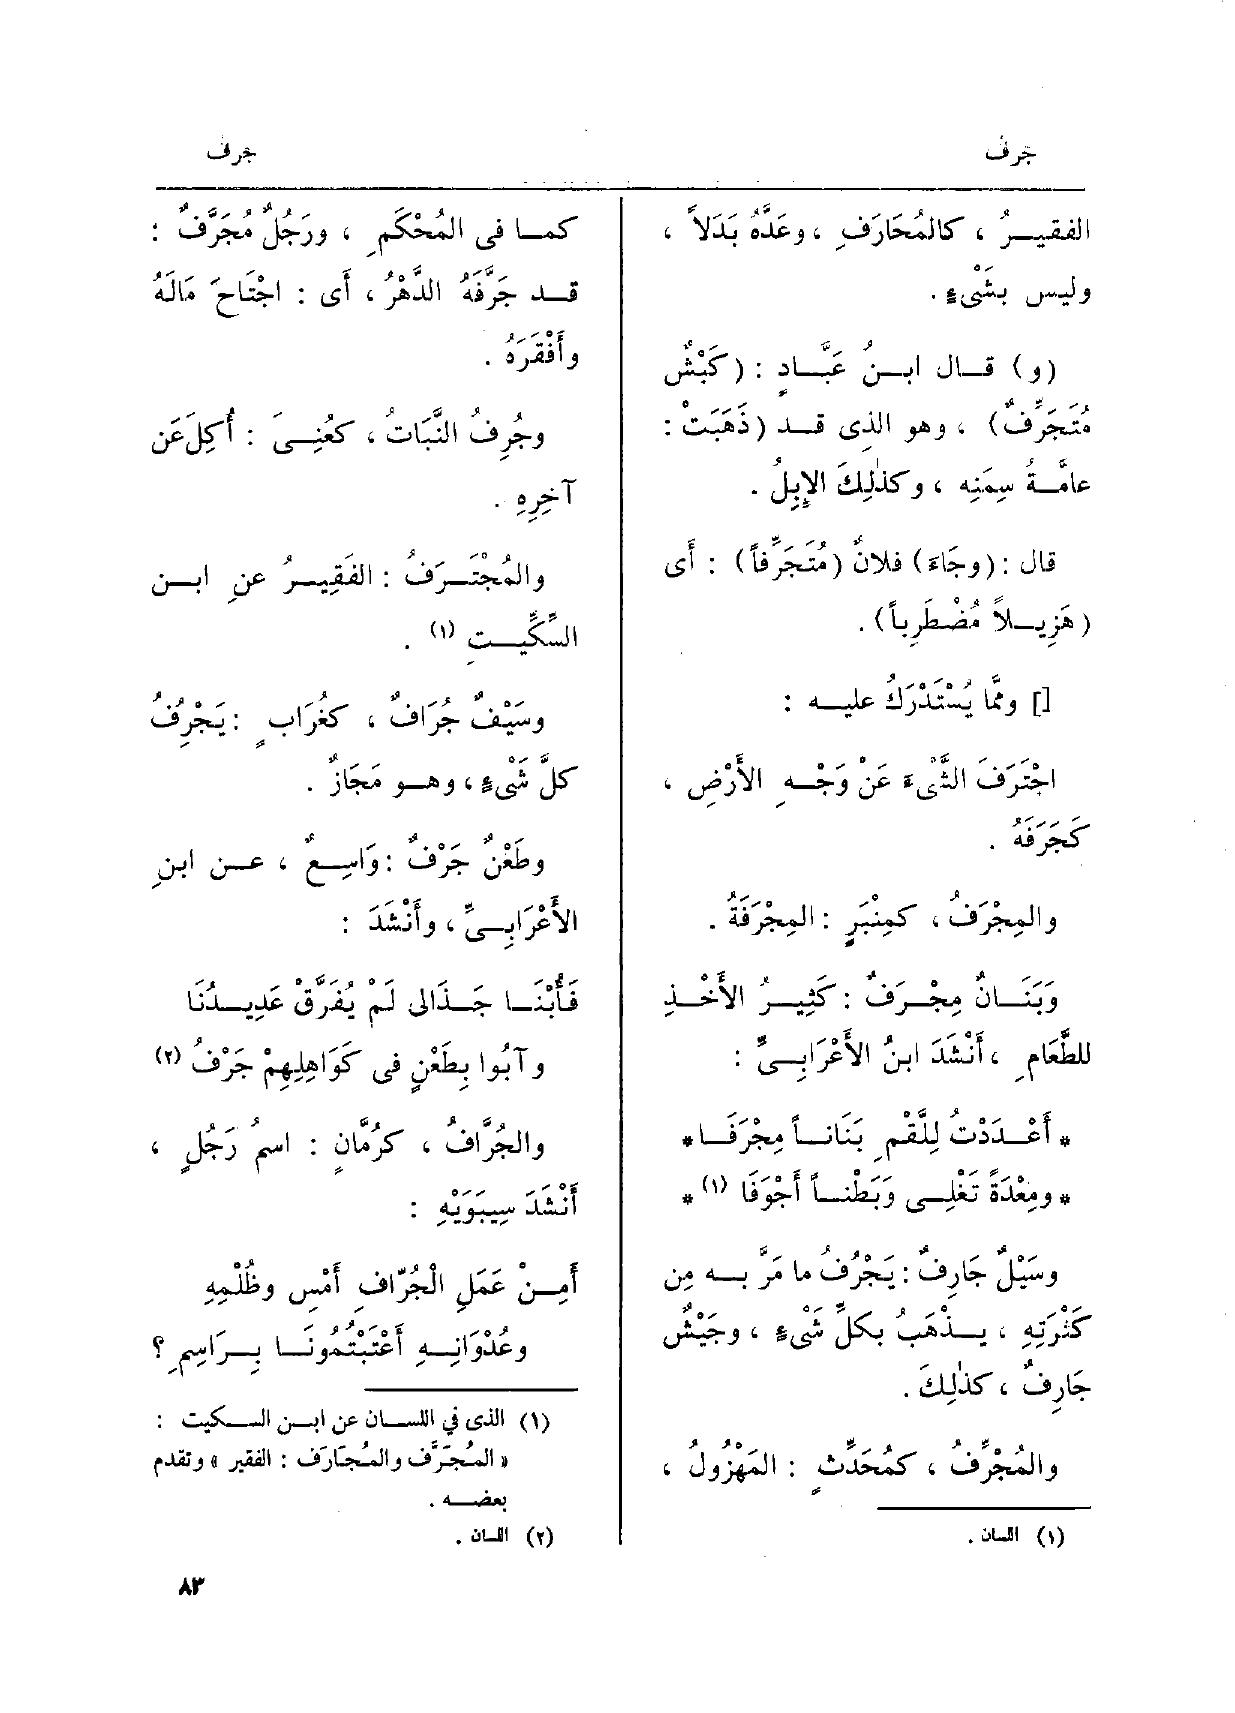 جرف
جرف
الفقيـــرُ ، كالمُحَارَفِ ، وعَدَّهُ بَدَلاً ،
وليس بشَىْءٍ .
(و) قــال ابــنُ عَبَّــادٍ : (كَبْشٌ
مُتَجَرِّفٌ) ، وهو الذى قــد (ذَهَبَتْ :
عامَّــةُ سِمَنِه ، وكذٰلِكَ الإِبِلُ .
قال : (وجَاءَ) فلانٌ (مُتَجَرِّفاً) : أَى
(هَزِيــلاً مُضْطَرِباً).
[] وممَّا يُسْتَدْرَكُ عليــه :
اجْتَرَفَ الشَّىْءَ عَنْ وَجْــهِ الأَرْضِ ،
كَجَرَفَهُ .
والمِجْرَفُ ، كمِنْبَرٍ : المِجْرَفَةُ .
وَبَنَــانٌ مِجْــرَفٌ : كَثِيــرُ الأَخْــذِ
للطَّعَامِ ، أَنْشَدَ ابنُ الأَعْرَابِــىِّ :
* أَعْــدَدْتُ لِلَّقْمِ بَنَانــاً مِجْرَفَــا *
* ومِعْدَةً تَغْلِــى وَبَطْنــاً أَجْوَفَا (١) *
وسَيْلٌ جَارِفٌ : يَجْرُفُ ما مَرَّ بــه مِن
كَثْرَتِهِ ، يــذْهَبُ بكلِّ شَىْءٍ ، وجَيْشٌ
جَارِفٌ ، كذٰلِكَ .
والمُجْرِّفُ ، كمُحَدِّثٍ : المَهْزُولُ ،
(١) اللسان .
كمــا فى المُحْكَمِ ، ورَجُلٌ مُجَرَّفٌ :
قــد جَرَّفَهُ الدَّهْرُ ، أَى : اجْتَاحَ مَالَهُ
وأَفْقَرَهُ .
وجُرِفُ النَّبَاتُ ، كعُنِــىَ : أُكِلَ عَن
آخِرِهِ .
والمُجْتَــرَفُ : الفَقِيــرُ عنِ ابــن
السِّكِّيــتِ (١) .
وسَيْفٌ جُرَافٌ ، كغُرَابٍ : يَجْرِفُ
كلَّ شَىْءٍ ، وهــو مَجَازٌ .
وطَعْنٌ جَرْفٌ : وَاسِــعٌ ، عــن ابنِ
الأَعْرَابِــىِّ ، وأَنْشَدَ :
فَأُبْنَــا جَــذَالى لَمْ يُفَرَّقْ عَدِيــدُنَا
وآبُوا بِطَعْنٍ فى كَوَاهِلِهِمْ جَرْفُ (٢)
والجُرَّافُ ، كرُمَّانٍ : اسمُ رَجُلٍ ،
أَنْشَدَ سِيبَوَيْهِ :
أَمِــنْ عَمَلِ الْجُرّافِ أَمْسِ وظُلْمِهِ
وعُدْوَانِــهِ أَعْتَبْتُمُونَــا بِــرَاسِمِ ؟
(١) الذى فى اللســان عن ابــن السكيت :
« المُجَرَّف والمُحَارَف : الفقير » وتقدم
بعضــه .
(٢) اللسان .
٨٣